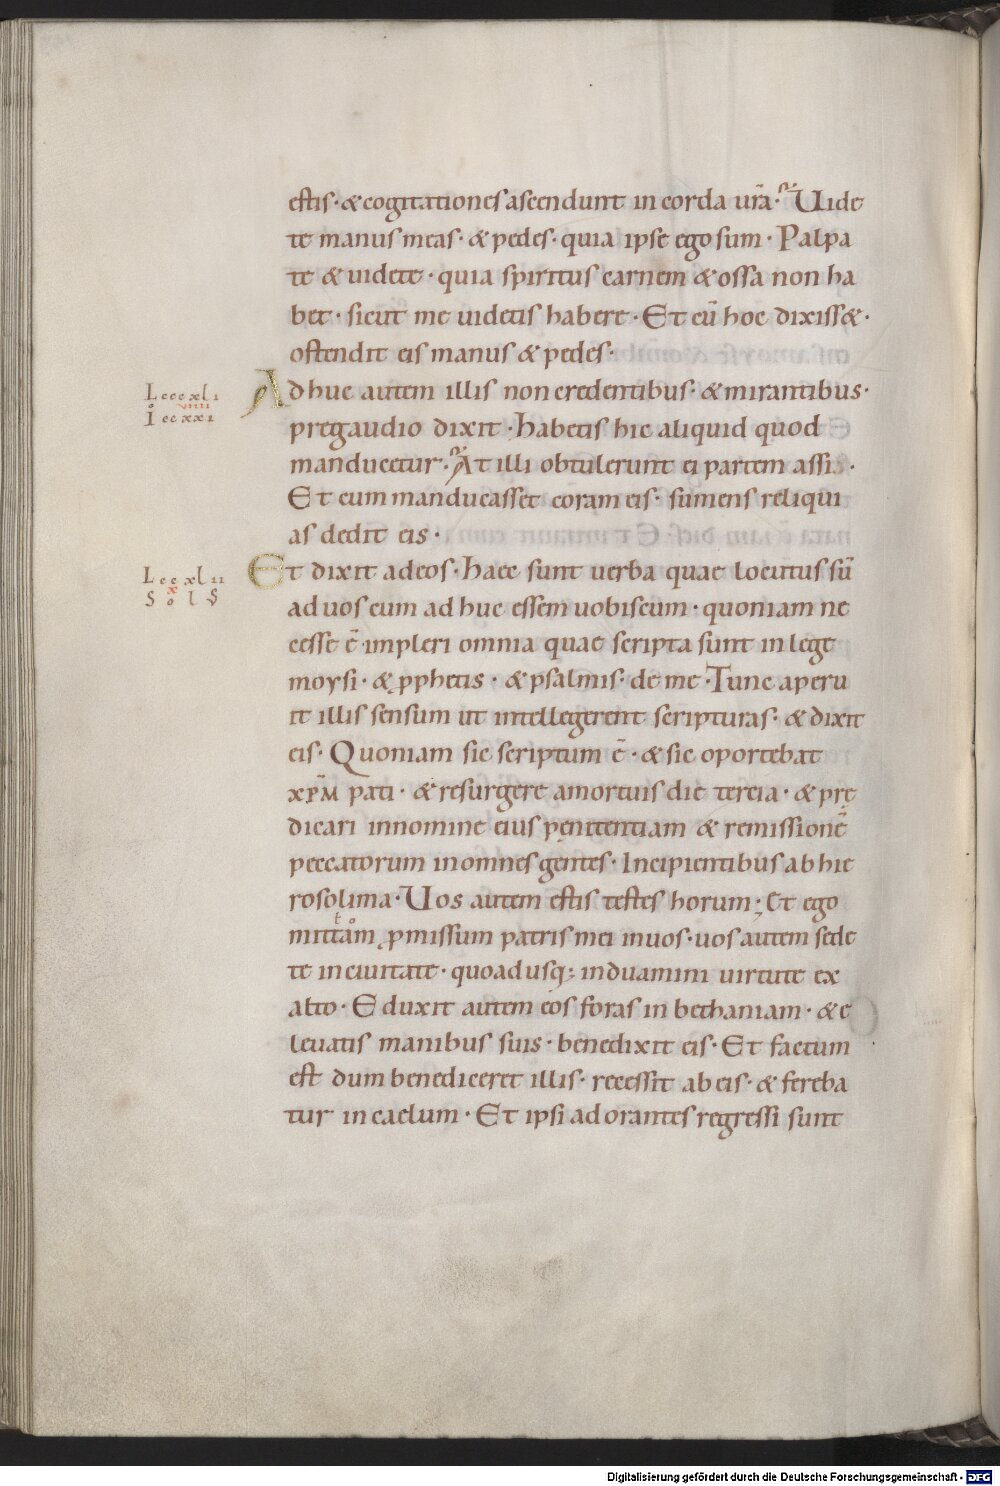 estis· & cogitationes ascendunt in corda urã·Uide
te manus meas· & pedes· quia ipse ego sum· Palpa
te & uidete· quia spiritus carnem & ossa non ha
bet· sicut me uidetis habere· Et cũ hoc dixiss&·
ostendit eis manus & pedes·
Lcccxli
uiiii
I ccxxi
Adhuc autem illis non credentibus· & mirantibus·
pregaudio dixit· habetis hic aliquid quod
manducetur· At illi obtulerunt ei partem assis·
Et cum manducasset coram eis· sumens reliqui
as dedit eis·
Lccxlii
x
Et dixit adeos· Haec sunt uerba quae locutus sũ
ad uos cum ad huc essem uobiscum· quoniam ne
cesse ẽ impleri omnia quae scripta sunt in lege
moysi· & ꝓphetis· & psalmis· de me· Tunc aperu
it illis sensum ut intellegerent scripturas· & dixit
eis· Quoniam sic scriptum ẽ· & sic oportebat
xp̃m pati· & resurgere amortuis die tercia· & prę
dicari innomine eius pęnitentiam & remissionẽ
peccatorum inomnes gentes· Incipientibus ab hie
rosolima· Uos autem estis testes horum; Et ego
mittam ꝓmissum patris mei inuos· uos autem sede
te in ciuitate· quoadusq; induamini uirtute ex
alto· Eduxit autem eos foras in bethaniam· & e
leuatis manibus suis· benedixit eis· Et factum
est dum benediceret illis· recessit ab eis· & fereba
tur in caelum· Et ipsi adorantes regressi sunt
Digitalisierung gefördert durch die Deutsche Forschungsgemeinschaft - DFG